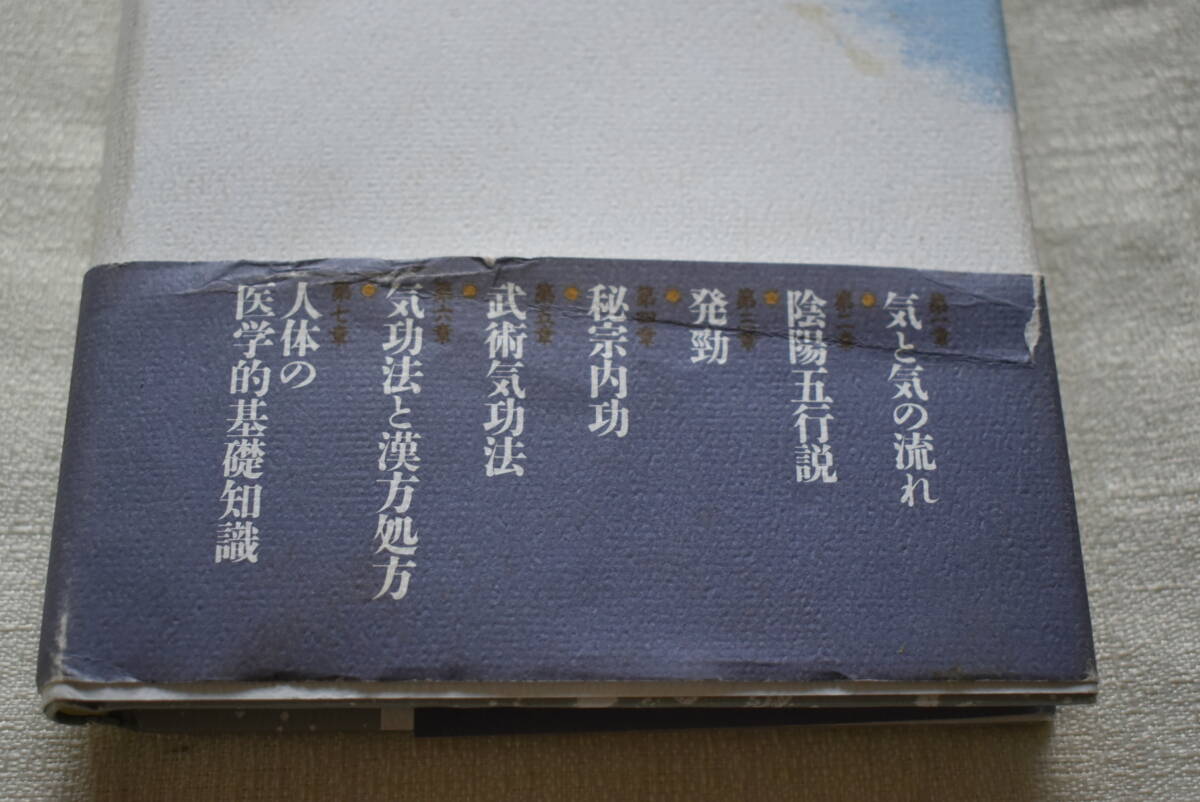 第一章
気と気の流れ
第二章
陰陽五行説
第三章
発勁
第四章
秘宗内功
第五章
武術気功法
第六章
気功法と漢方処方
第七章
人体の
医学的基礎知識